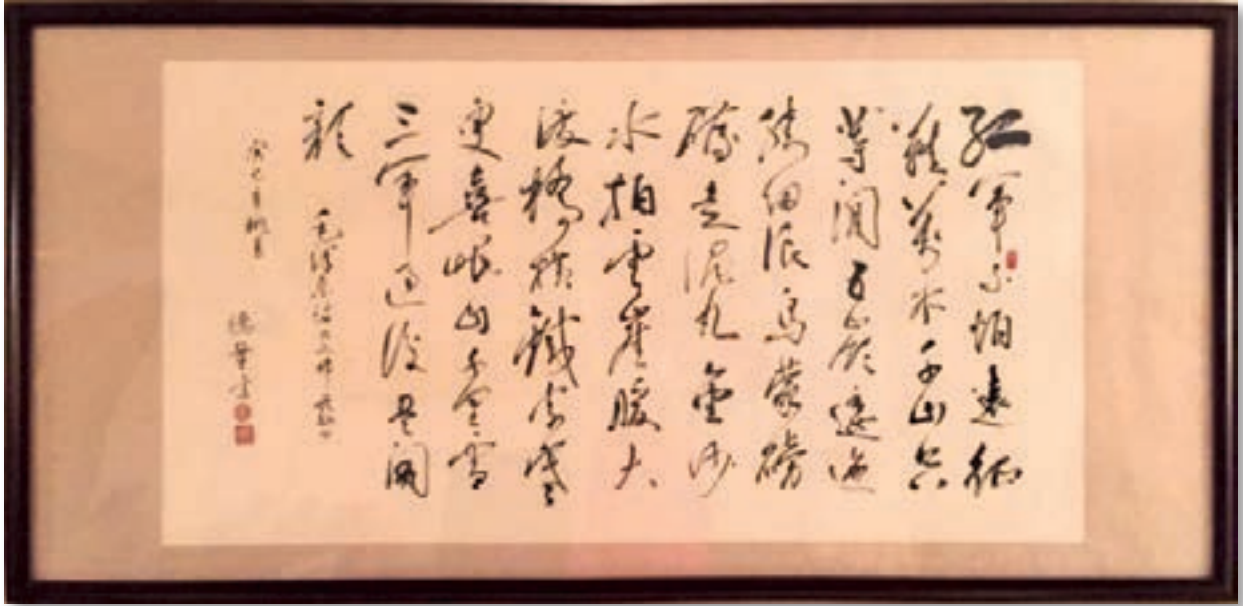 紅軍不怕遠征
難萬水千山只
等閒五嶺逶迤
騰細浪烏蒙磅
礴走泥丸金沙
水拍雲崖暖大
渡橋橫鐵索寒
更喜岷山千里雪
三軍過後盡開
顏 毛澤東
癸巳年